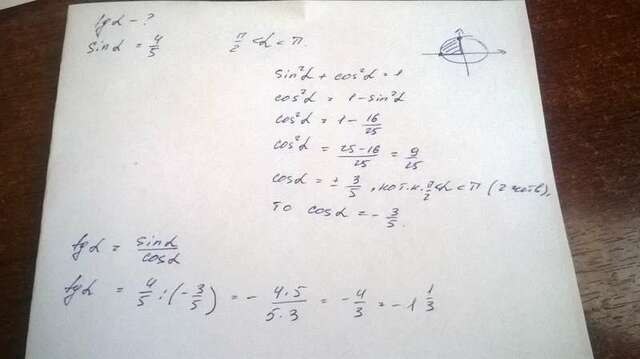 tgα - ?
sinα = 4/5    π/2 < α < π.
sin²α + cos²α = 1
cos²α = 1 - sin²α
cos²α = 1 - 16/25
cos²α = 25-16/25 = 9/25
cosα = ± 3/5, но т.к. π/2 < α < π (2 четв),
то cosα = - 3/5.
tgα = sinα/cosα
tgα = 4/5 : (- 3/5) = - 4·5/5·3 = - 4/3 = - 1 1/3